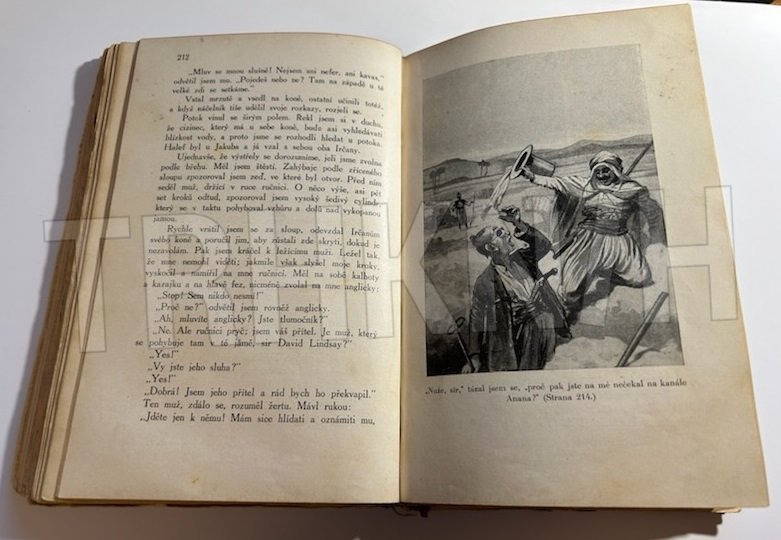 212
„Mluv se mnou slušně! Nejsem ani nefer, ani kavas,“
odvětil jsem mu. „Pojedeš nebo ne? Tam na západě u té
velké zdi se setkáme.“
Vstal mrzutě a vsedl na koně, ostatní učinili totéž,
a když náčelník tiše udělil svoje rozkazy, rozjeli se.
Potok vinul se širým polem. Řekl jsem si v duchu,
že cizinec, který má u sebe koně, bude asi vyhledávati
blízkost vody, a proto jsme se rozhodli hledat u potoka.
Halef byl u Jakuba a já vzal s sebou oba Irčany.
Ujednavše, že výstřely se dorozumíme, jeli jsme zvolna
podle břehu. Měl jsem štěstí. Zahýbaje podle zříceného
sloupu zpozoroval jsem zeď, ve které byl otvor. Před ním
seděl muž, držící v ruce ručnici. O něco výše, asi pět
set kroků odtud, zpozoroval jsem vysoký šedivý cylindr,
který se v taktu pohyboval vzhůru a dolů nad vykopanou
jámou.
Rychle vrátil jsem se za sloup, odevzdal Irčanům
svého koně a poručil jim, aby zůstali zde skryti, dokud je
nezavolám. Pak jsem kráčel k ležícímu muži. Ležel tak,
že mne nemohl viděti; jakmile však slyšel moje kroky,
vyskočil a namířil na mne ručnici. Měl na sobě kalhoty
a kazajku a na hlavě fez, nicméně zvolal na mne anglicky:
„Stop! Sem nikdo nesmí!“
„Proč ne?“ odvětil jsem rovněž anglicky.
„Ah, mluvíte anglicky? Jste tlumočník?“
„Ne. Ale ručnici pryč; jsem váš přítel. Je muž, který
se pohybuje tam v té jámě, sir David Lindsay?“
„Yes!“
„Vy jste jeho sluha?“
„Yes!“
„Dobrá! Jsem jeho přítel a rád bych ho překvapil.“
Ten muž, zdálo se, rozuměl žertu. Mávl rukou:
„Jděte jen k němu! Mám sice hlídati a oznámiti mu,
„Nuže, sir,“ tázal jsem se, „proč pak jste na mě nečekal na kanále
Anana?“ (Strana 214.)